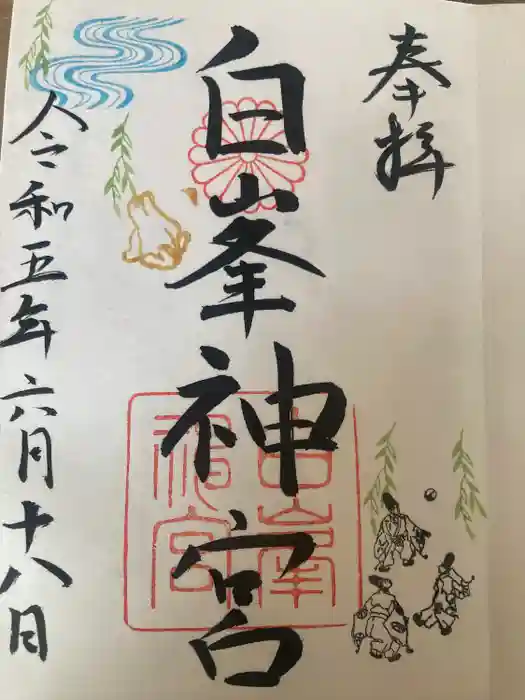 奉拝
白峯神宮
白峯
神宮
令和五年六月十八日